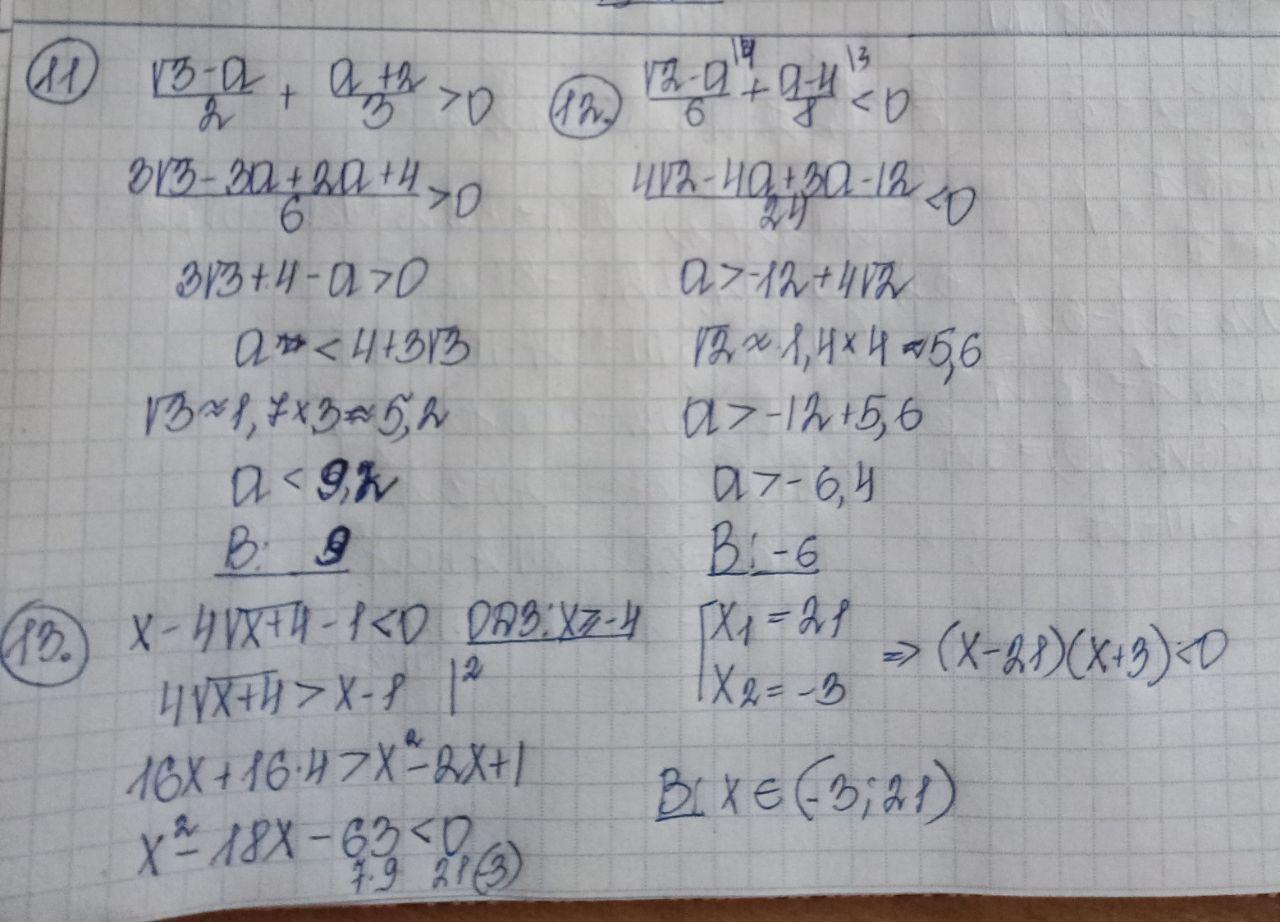 11 (√3-a)/2 + (a+2)/3 >0
(3√3-3a+2a+4)/6 >0
3√3+4-a>0
a < 4+3√3
√3≈1,7×3≈5,2
a < 9,2
В: 9
12. (√2-a)/6 |4 + (a-4)/8 |3 <0
(4√2-4a+3a-12)/24 <0
a>-12+4√2
√2≈1,4×4≈5,6
a>-12+5,6
a>-6,4
В: -6
13. x-4√(x+4)-1<0 ОДЗ: x≥-4
4√(x+4)>x-1 |²
16x+16·4>x²-2x+1
x²-18x-63<0
7·9 21(-3)
[x₁=21
x₂=-3 => (x-21)(x+3)<0
В: x∈(-3;21)